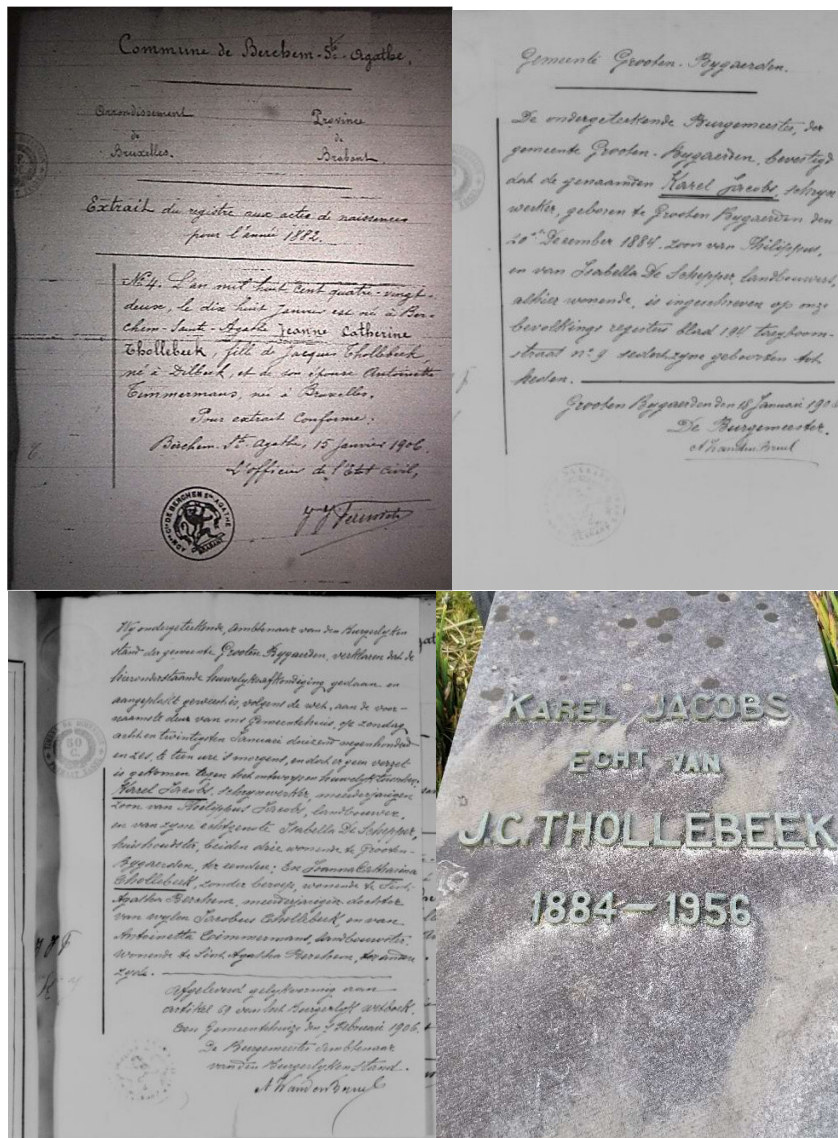 Commune de Berchem-Ste-Agathe,
Arrondissement
de
Bruxelles.
Province
de
Brabant.
Extrait du registre aux actes de naissances
pour l'année 1882.
No 4. L'an mil huit cent quatre-vingt-
deux, le dix huit Janvier est née à Ber-
chem-Sainte-Agathe Jeanne Catherine
Thollebeek, fille de Jacques Thollebeek,
né à Dilbeek, et de son épouse Antoinette
Timmermans, née à Bruxelles.
Pour extrait conforme.
Berchem-Ste-Agathe, 15 Janvier 1906.
L'officier de l'Etat civil,
ADMON CLE DE BERCHEM STE AGATHE
BRABANT
Gemeente Grooten-Bygaerden.
De ondergeteekende Burgemeester, der
gemeente Grooten-Bygaerden, bevestigd
dat de genaamden Karel Jacobs, schryn
werker, geboren te Grooten Bygaerden den
20en December 1884, zoon van Philippus,
en van Isabella De Schepper, landbouwers,
alhier wonende, is ingeschreven op onze
bevolkings registers blad 194
straat no 9 sedert zyne geboorte tot
heden.
Grooten Bygaerden den 18 Januari 190
De Burgemeester.
Wy ondergeteekende, Ambtenaar van den Burgerlyken
stand der gemeente Grooten Bygaerden, verklaren dat de
hieronderstaande huwelyksafkondiging gedaan en
aangeplakt geweest is, volgens de wet, aan de voor-
naamste deur van ons Gemeentehuis, op zondag
acht en twintigsten Januari duizend negenhonderd
en zes, te tien ure 's morgens, en dat er geen verzet
is gekomen tegen het ontworpen huwelyk tusschen
Karel Jacobs, schrynwerker, meerderjarigen
zoon van Philippus Jacobs, landbouwer,
en van zyne echtgenote Isabella De Schepper,
huishoudster, beiden drie wonende te Grooten-
Bygaerden, ter eender; En Joanna Catharina
Thollebeek, zonder beroep, wonende te Sint
Agatha Berchem, meerderjarige dochter
van wylen Jacobus Thollebeek, en van
Antoinetta Timmermans, landbouwster
wonende te Sint Agatha Berchem, ter andere
zyde.
Afgeleverd gelykvormig aan
artikel 69 van het Burgerlyk wetboek.
Een Gemeentehuize den Februari 1906.
De Burgemeester Ambtenaar
van den Burgerlyken stand.
50
C.
KAREL JACOBS
ECHT VAN
J.C. THOLLEBEEK
1884 — 1956